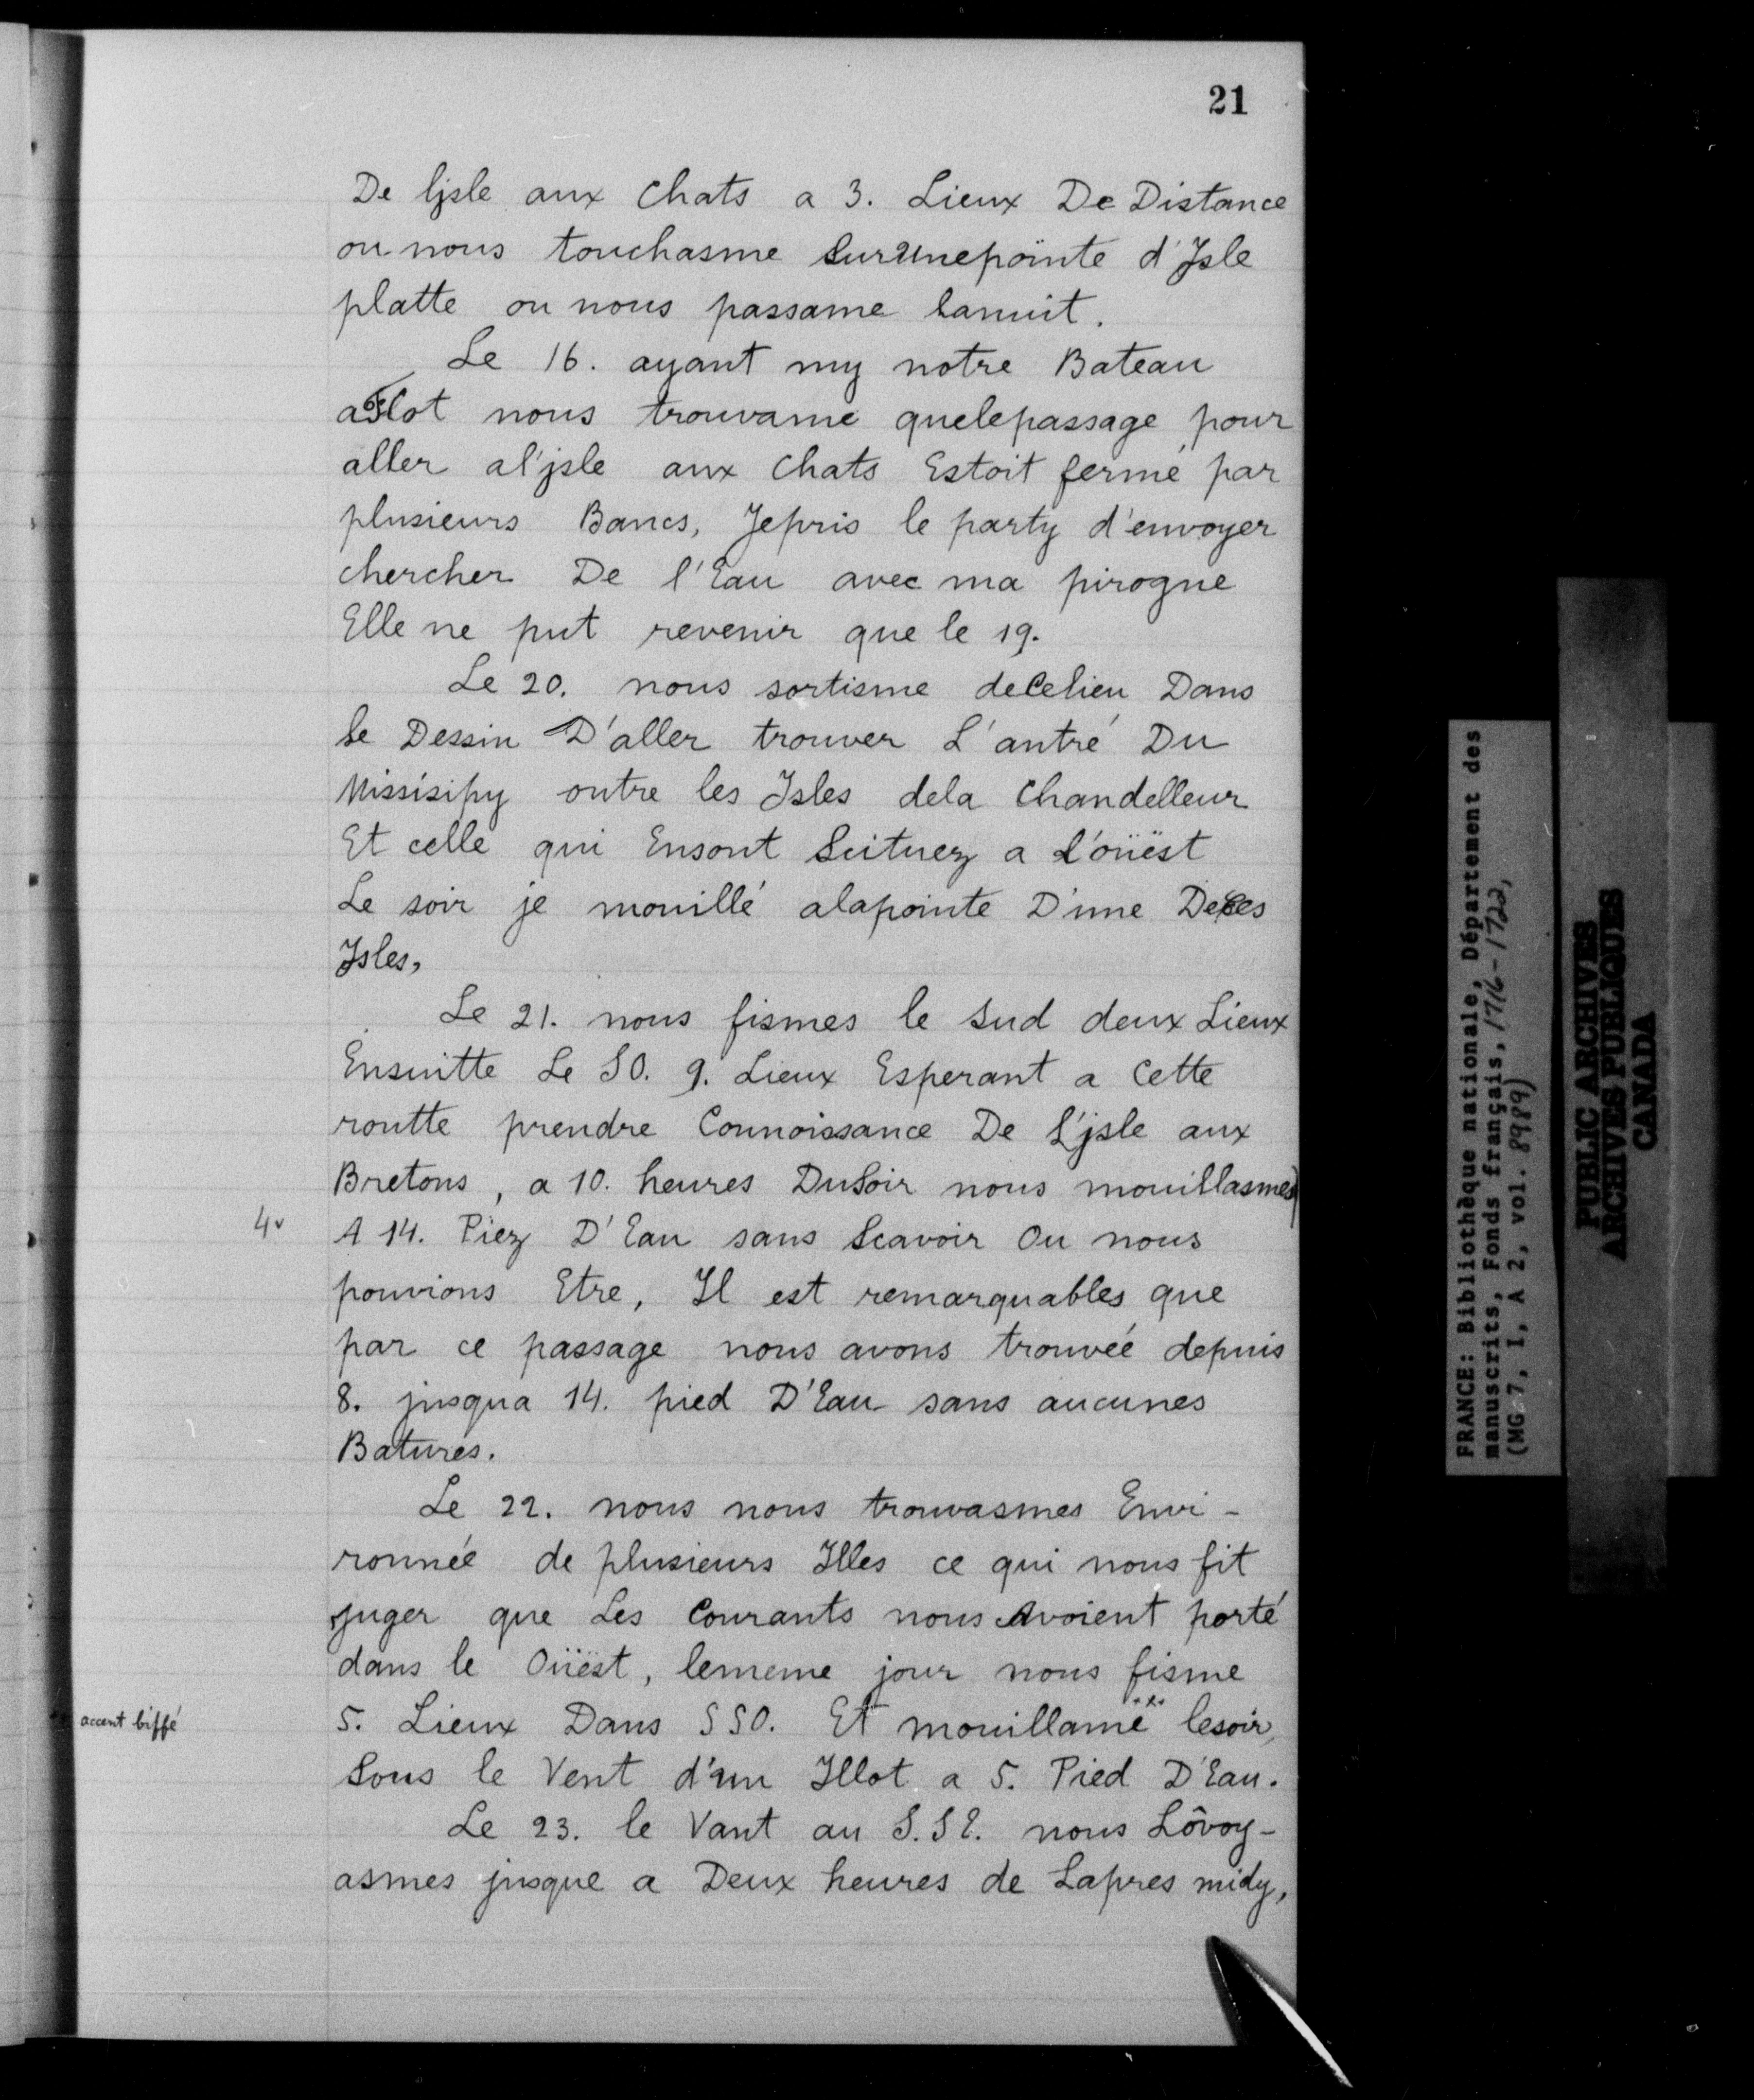 21
De ljsle aux Chats a 3. Lieux De Distance
ou nous touchasme Surunepointe d'Isle
platte ou nous passame lanuit.
Le 16. ayant my notre Bateau
aflot nous trouvame quelepassage pour
aller al'jsle aux Chats Estoit fermé par
plusieurs Bancs, Jepris le party d'envoyer
chercher De l'Eau avec ma pirogne
Elle ne put revenir que le 19.
Le 20. nous sortisme deCelieu Dans
le Dessin D'aller trouver L'antré Du
Missisipy ontre les Isles dela Chandelleur
Et celle qui Ensont Scituez a L'oüest
Le soir je mouillé alapointe D'une DeCes
Isles,
Le 21. nous fismes le Sud deux Lieux
Ensuitte Le SO. 9. Lieux Esperant a Cette
routte prendre Connoissance De L'jsle aux
Bretons, a 10. heures DuSoir nous mouillasmes
4v A 14. Piez D'Eau sans Scavoir Ou nous
pouvions Etre, Il est remarquables que
par ce passage nous avons trouvéé depuis
8. jusqua 14. pied D'Eau sans aucunes
Batures.
Le 22. nous nous trouvasmes Envi-
ronnée de plusieurs Illes ce qui nous fit
juger que Les Courants nous Avoient porté
dans le Oüest, lememe jour nous fisme
accent biffé 5. Lieux Dans SSO. Et mouillame lesoir,
Sous le Vent d'un Illot a 5. Pied D'Eau.
Le 23. le Vant au S.SE. nous Lôvoy-
asmes jusque a Deux heures de Lapres midy,
FRANCE: Bibliothèque nationale, Département des
manuscrits, Fonds français, 1716-1722,
(MG 7, I, A 2, vol. 8989)
PUBLIC ARCHIVES
ARCHIVES PUBLIQUES
CANADA